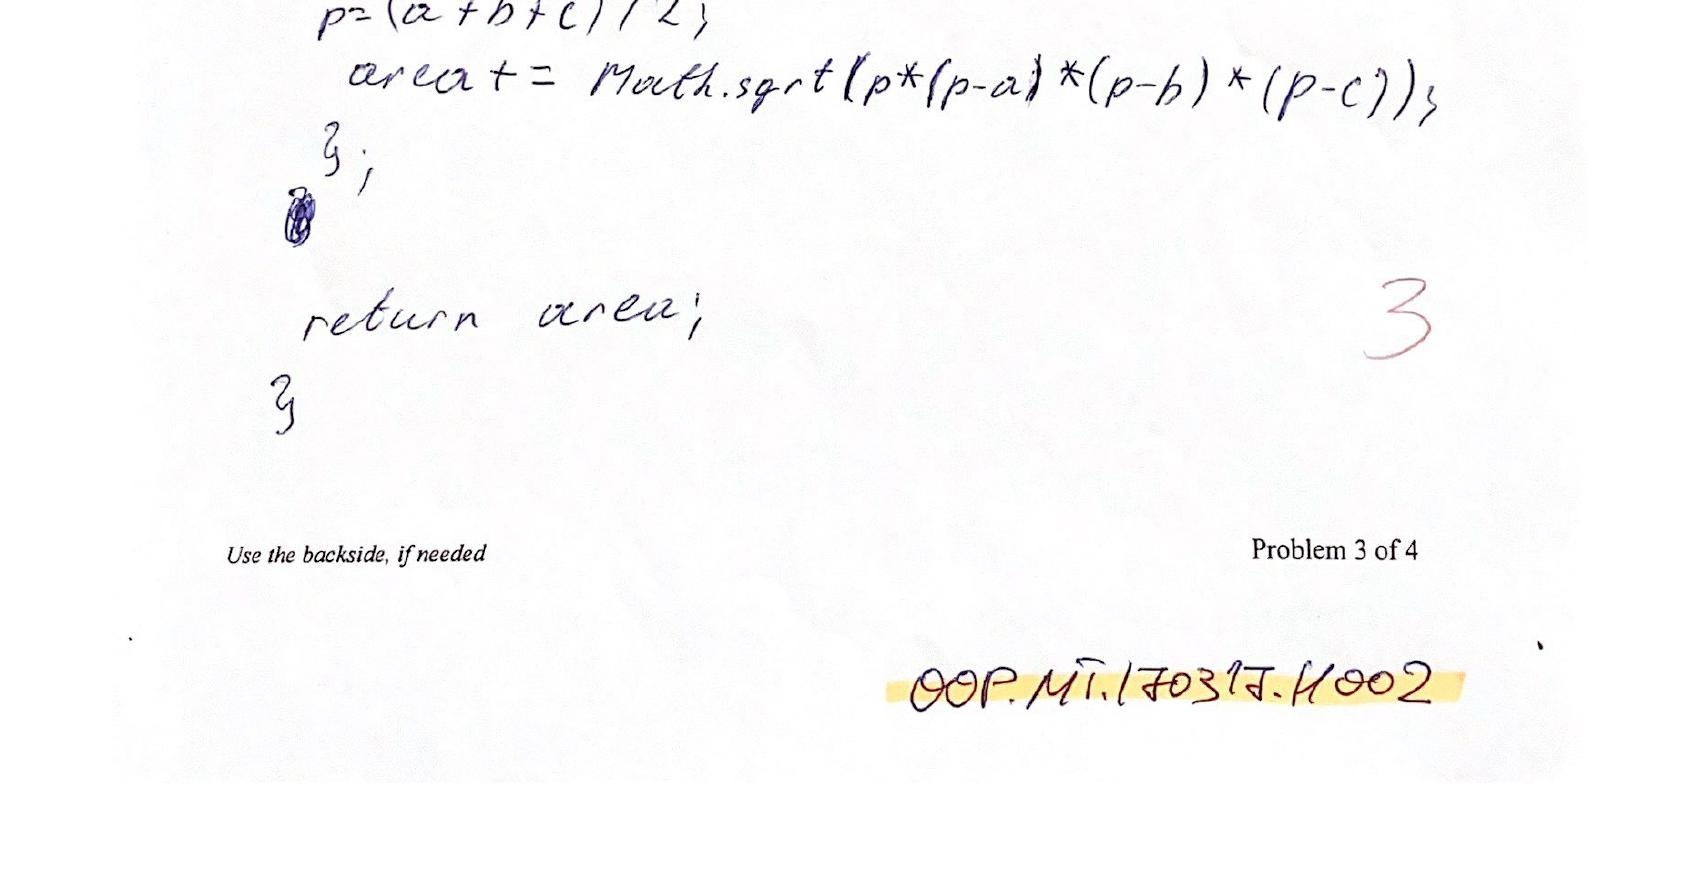 p=(a+b+c)/2;
area+= Math.sqrt(p*(p-a)*(p-b)*(p-c));
};
return area;
3
}
Use the backside, if needed
Problem 3 of 4
OOP.MT.170317.H002